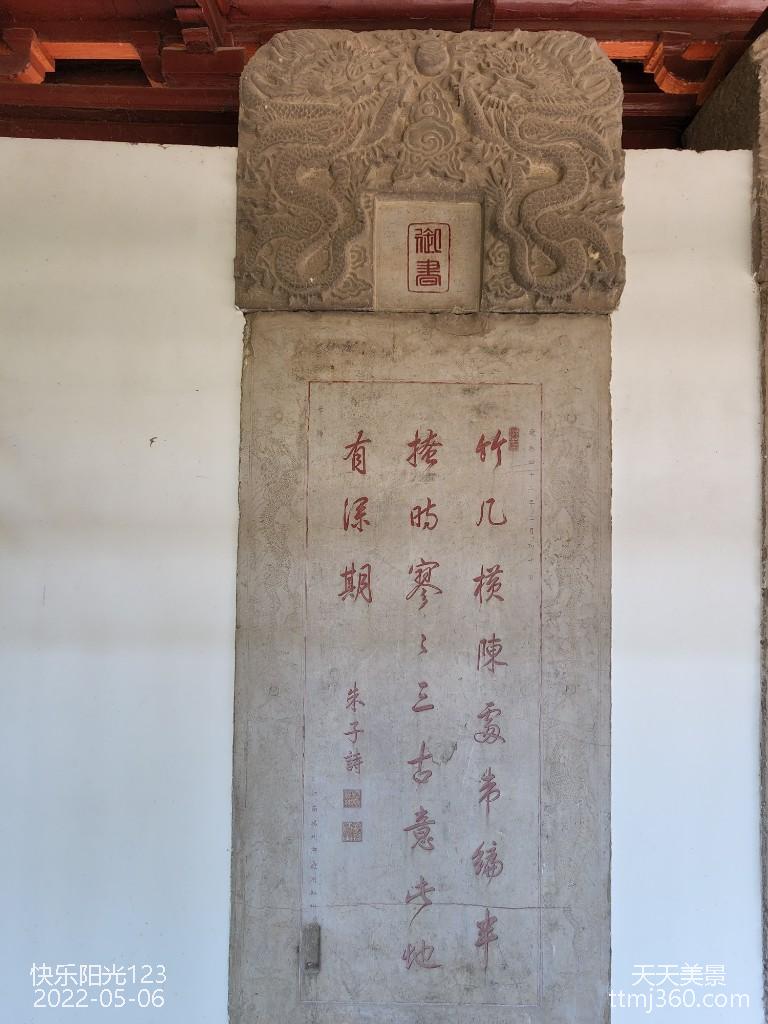 御書
竹几橫陳處韋編半
掩時寥々三古意此地
有深期
朱子詩
快乐阳光123
2022-05-06
天天美景
ttmj360.com